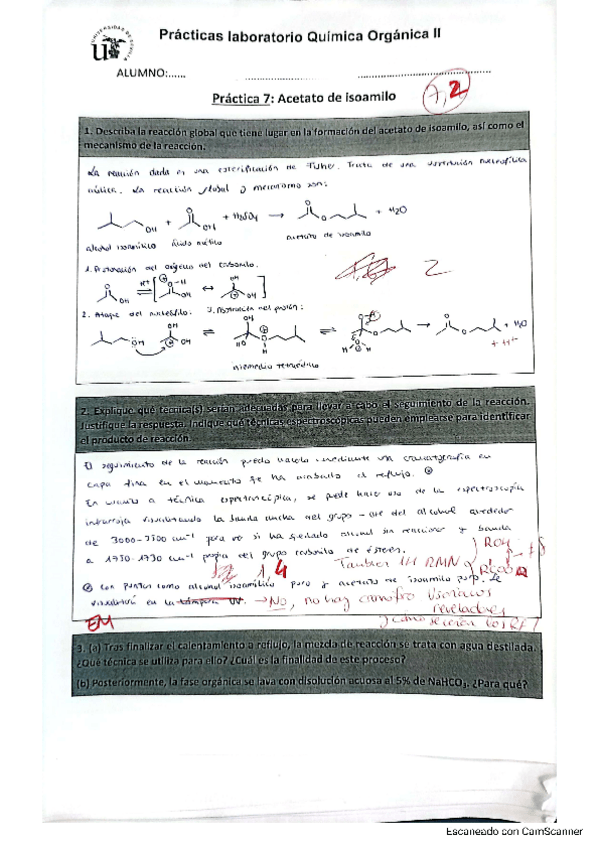 UNIVERSIDAD DE SEVILLA
Prácticas laboratorio Química Orgánica II
ALUMNO:......
Práctica 7: Acetato de isoamilo
7,2
1. Describa la reacción global que tiene lugar en la formación del acetato de isoamilo, así como el
mecanismo de la reacción.
La reacción dada es una esterificación de Fisher. Trata de una sustitución nucleofílica
acílica. La reacción global y mecanismo son:
OH + OH + H2SO4 → O + H2O
alcohol isoamílico ácido acético acetato de isoamilo
1. Protonación del oxígeno del carbonilo.
2
2. Ataque del nucleófilo. 3.
+ H2O
+ H+
intermedio tetraédrico
2. Explique qué técnica(s) serían adecuadas para llevar a cabo el seguimiento de la reacción.
Justifique la respuesta. Indique qué técnicas espectroscópicas pueden emplearse para identificar
el producto de reacción.
El seguimiento de la reacción puedo hacerlo mediante una cromatografía en
capa fina en el momento se ha acabado el reflujo.
En cuanto a técnica espectroscópica, se puede hacer uso de la espectroscopía
infrarroja visualizando la banda ancha del grupo -OH del alcohol alrededor
de 3000-3500 cm-1 para ver si ha quedado alcohol sin reaccionar y banda
a 1750-1730 cm-1 propia del grupo carbonilo de ésteres.
1,4
También 1H RMN
con puntos como alcohol isoamílico puro y acetato de isoamilo puro. Se
visualizaría en la lámpara UV. → No, no hay cromóforo Usaríamos
reveladores
EM
3. (a) Tras finalizar el calentamiento a reflujo, la mezcla de reacción se trata con agua destilada.
¿Qué técnica se utiliza para ello? ¿Cuál es la finalidad de este proceso?
(b) Posteriormente, la fase orgánica se lava con disolución acuosa al 5% de NaHCO3. ¿Para qué?
Escaneado con CamScanner